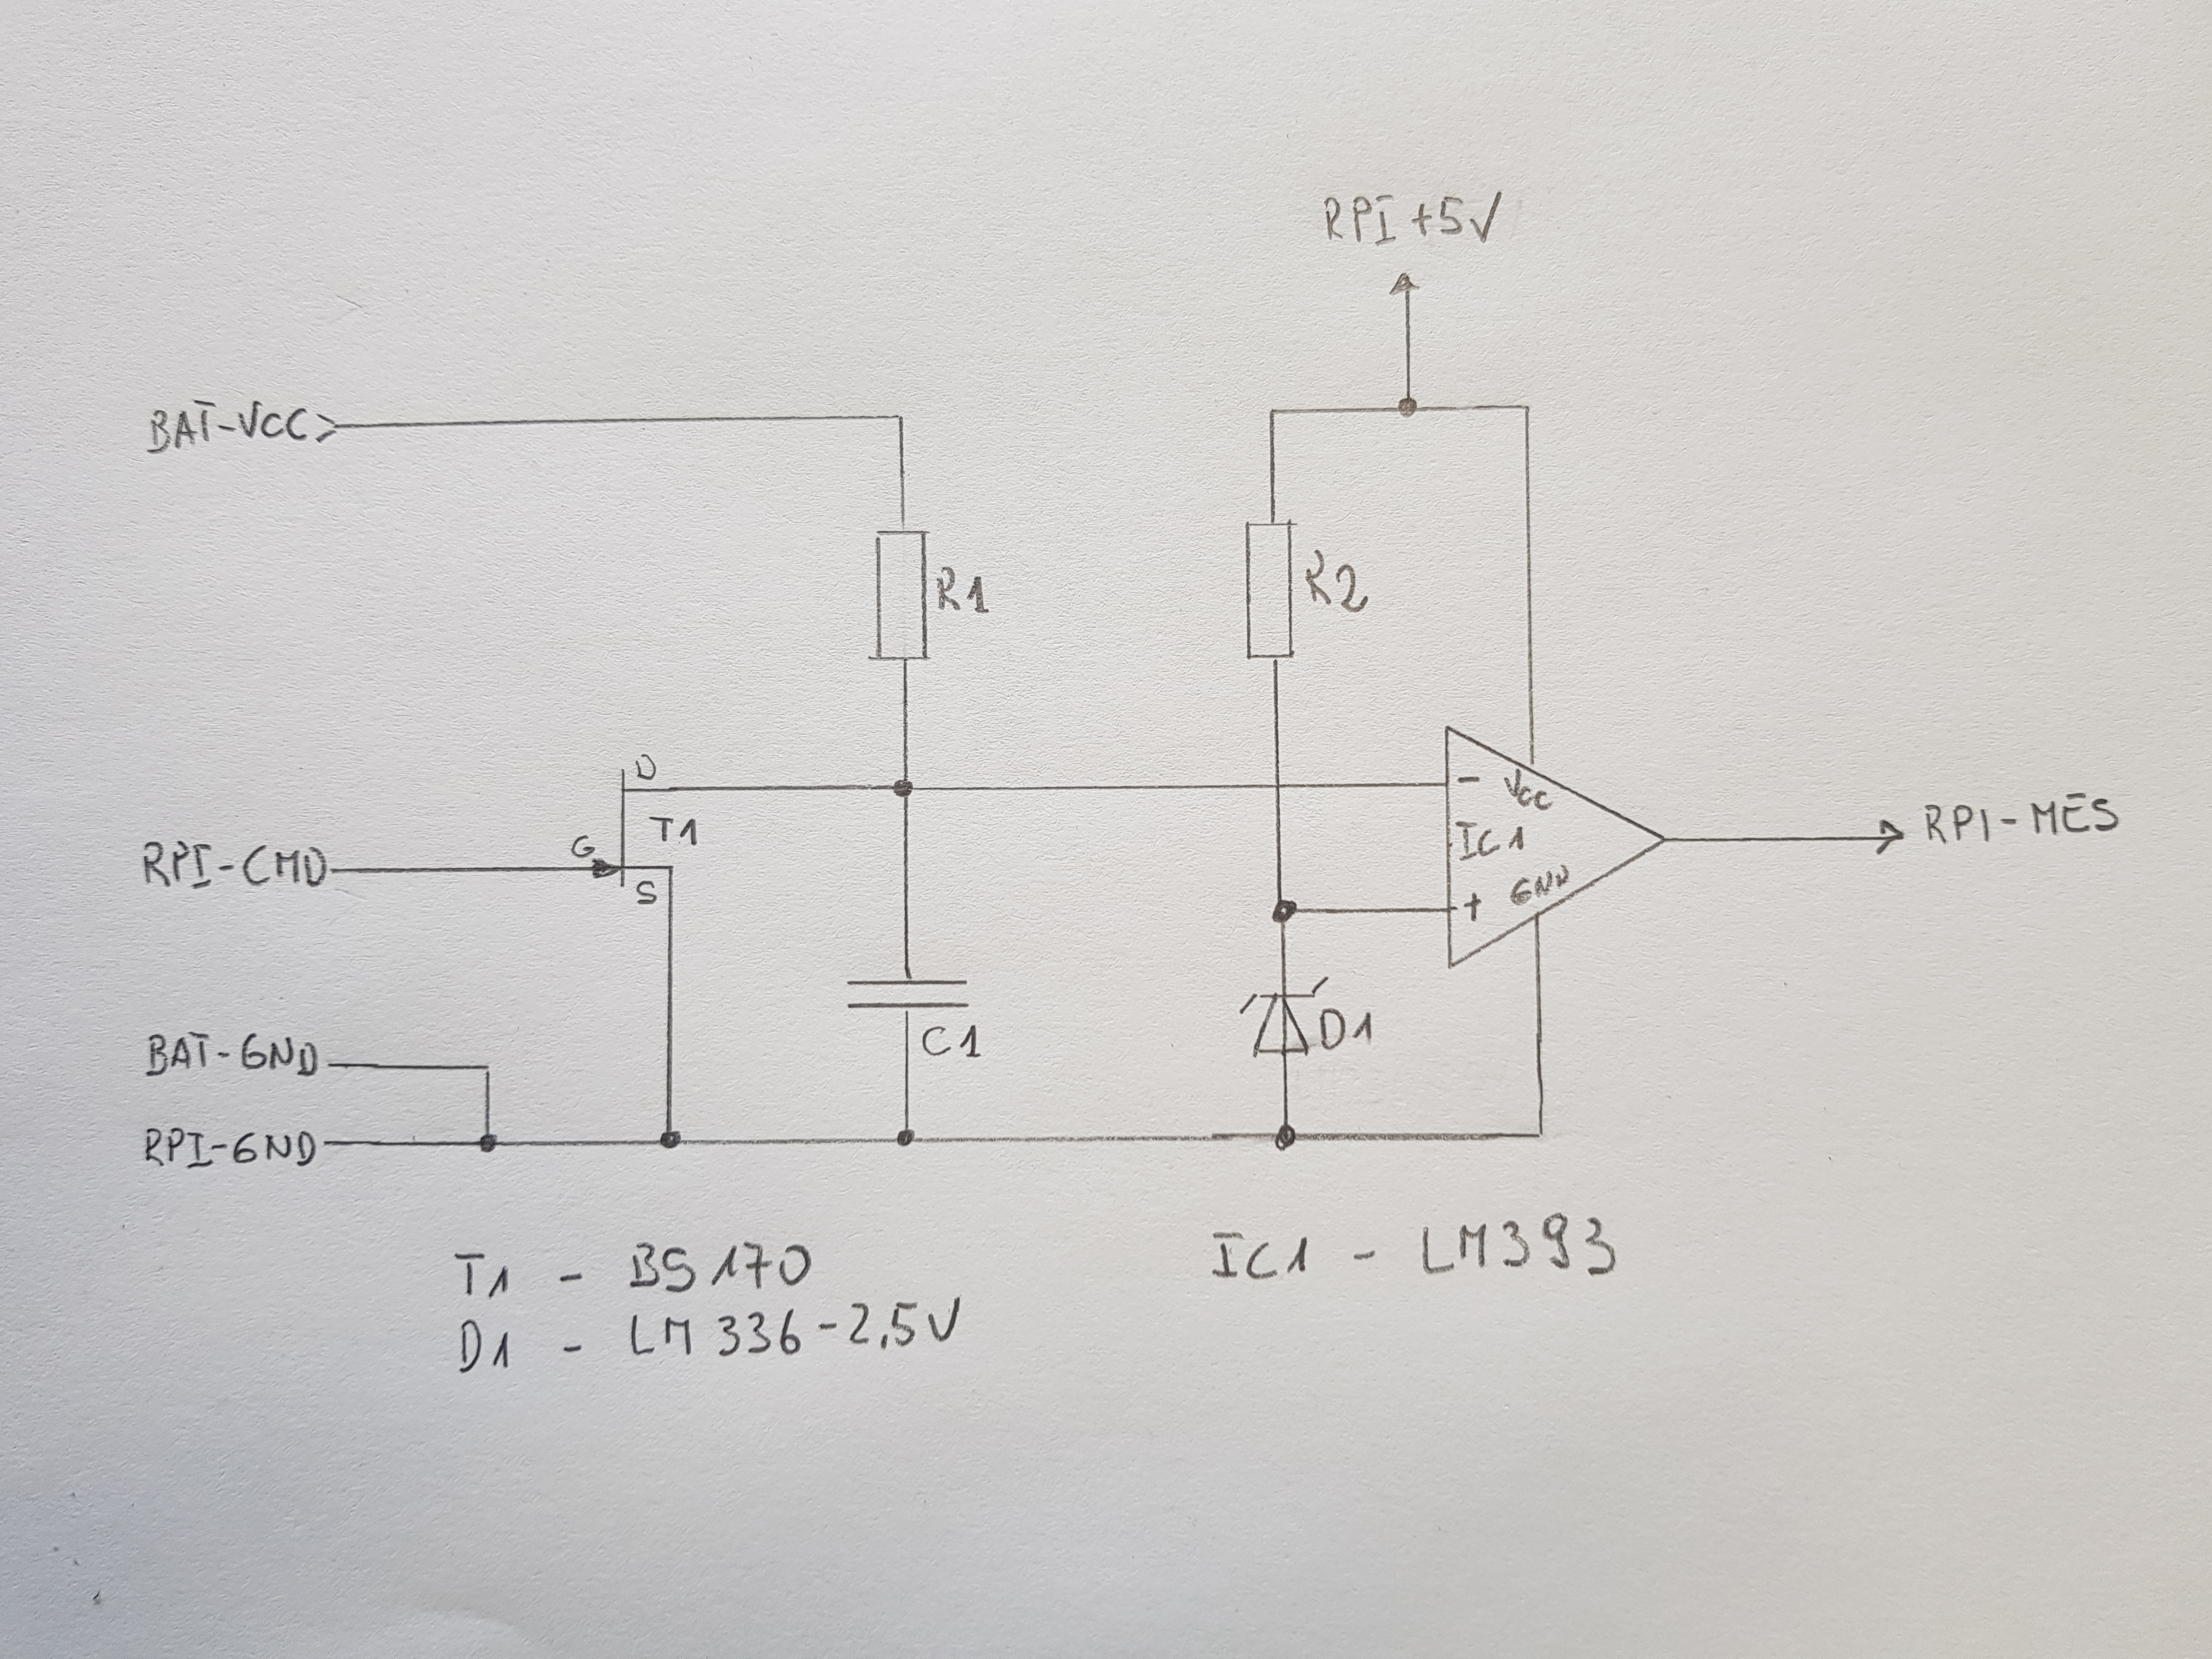 RPI +5V
BAT-VCC
R1
R2
D
T1
G
S
RPI-CMD
-
VCC
IC1
GND
+
RPI-MES
C1
D1
BAT-GND
RPI-GND
T1 - BS170
D1 - LM336-2.5V
IC1 - LM393